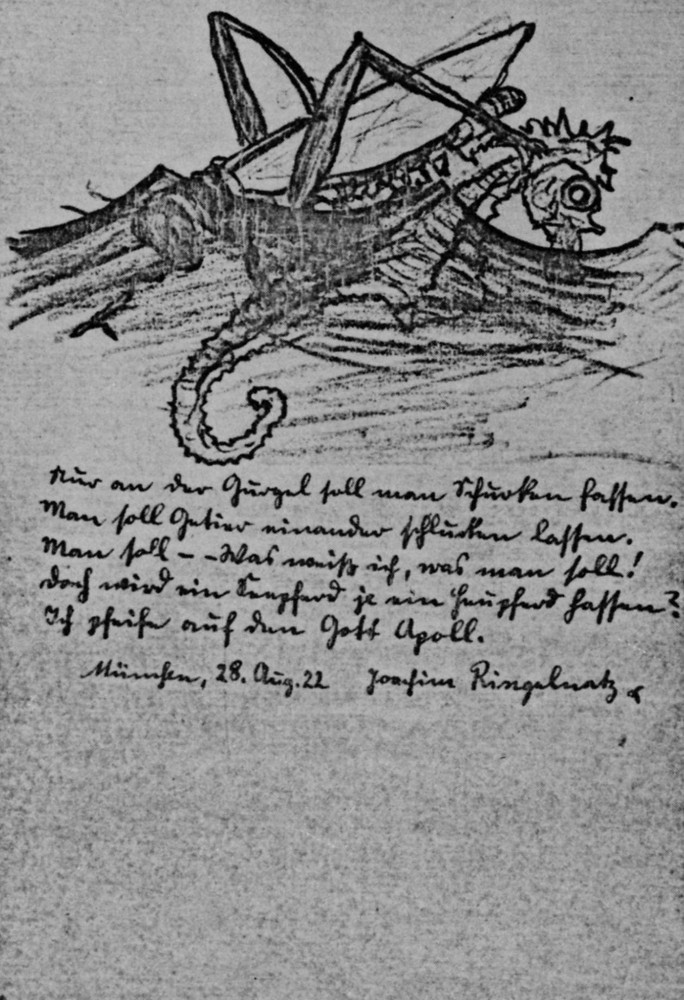 Nur an der Gurgel soll man Schurken fassen.
Man soll Getier einander schlucken lassen.
Man soll – – Was weiß ich, was man soll!
Doch wird ein Seepferd je ein Heupferd hassen?
Ich pfeife auf den Gott Apoll.
München, 28. Aug. 22 Joachim Ringelnatz